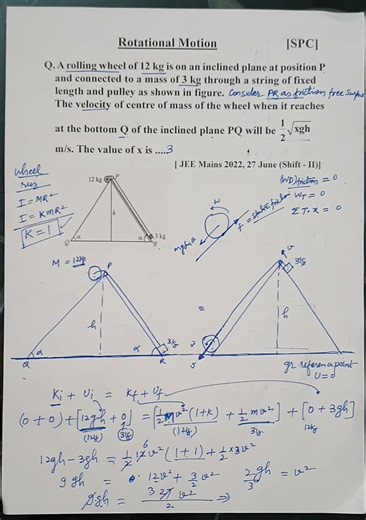 Rotational Motion [SPC]
Q. A rolling wheel of 12 kg is on an inclined plane at position P
and connected to a mass of 3 kg through a string of fixed
length and pulley as shown in figure. Consider PR as friction free surface
The velocity of centre of mass of the wheel when it reaches
at the bottom Q of the inclined plane PQ will be 1/2 √xgh
m/s. The value of x is ....3
[ JEE Mains 2022, 27 June (Shift - II)]
wheel
I = MR²
I = KMR²
K = 1
12 kg P
h
Q α α R 3 kg
ω
mg sinθ
f = static friction
(WD) friction = 0
W_T = 0
ΣT·x = 0
M = 12kg P
h
Q α α R 3kg
=
v
3kg
h
v
gr reference point
U = 0
Ki + Ui = Kf + Uf
(0 + 0) + [12gh + 0] = [1/2 Mv²(1+k) + 1/2 mv²] + [0 + 3gh]
(12kg) (3kg) (12kg) 3kg 12kg
12gh - 3gh = 1/2 12 6 v² (1 + 1) + 1/2 × 3v²
9gh = 12v² + 3/2 v²
2gh/3 = v²
9gh = 3 27 v²/2 ⇒